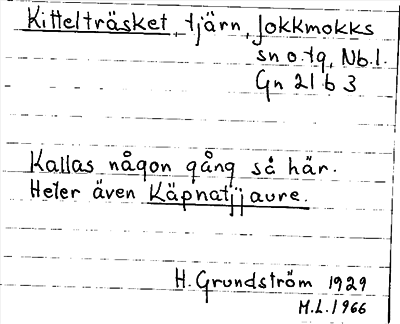 Kittelträsket, tjärn, Jokkmokks
sn o. tg, Nb. l.
Gn 21 b 3
Kallas någon gång så här.
Heter även Käpnatjjaure.
H. Grundström 1929
M.L. 1966